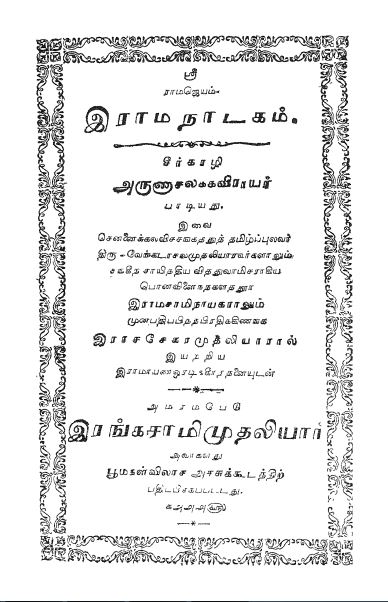 ஸ்ரீ
ராமஜெயம்.
இராமநாடகம்.
சீர்காழி
அருணாசலக்கவிராயர்
பாடியது.
இவை
சென்னைக்கலவிச்சங்கத்துத் தமிழ்ப்புலவர்
திரு வேங்கடாசலமுதலியாரவர்களாலும்
சங்கீத சாயித்திய வித்துவாமிசராகிய
இராமசாமிநாயகராலும்
முன்பதிப்பித்தபிரதிக்கிணங்க
இராசசேகரமுதலியாரால்
இயற்றிய
அமரம்பேடு
இரங்கசாமிமுதலியார்
அவர்களது
பூமகள்விலாச அச்சுக்கூடத்திற்
பதிப்பிக்கப்பட்டது.